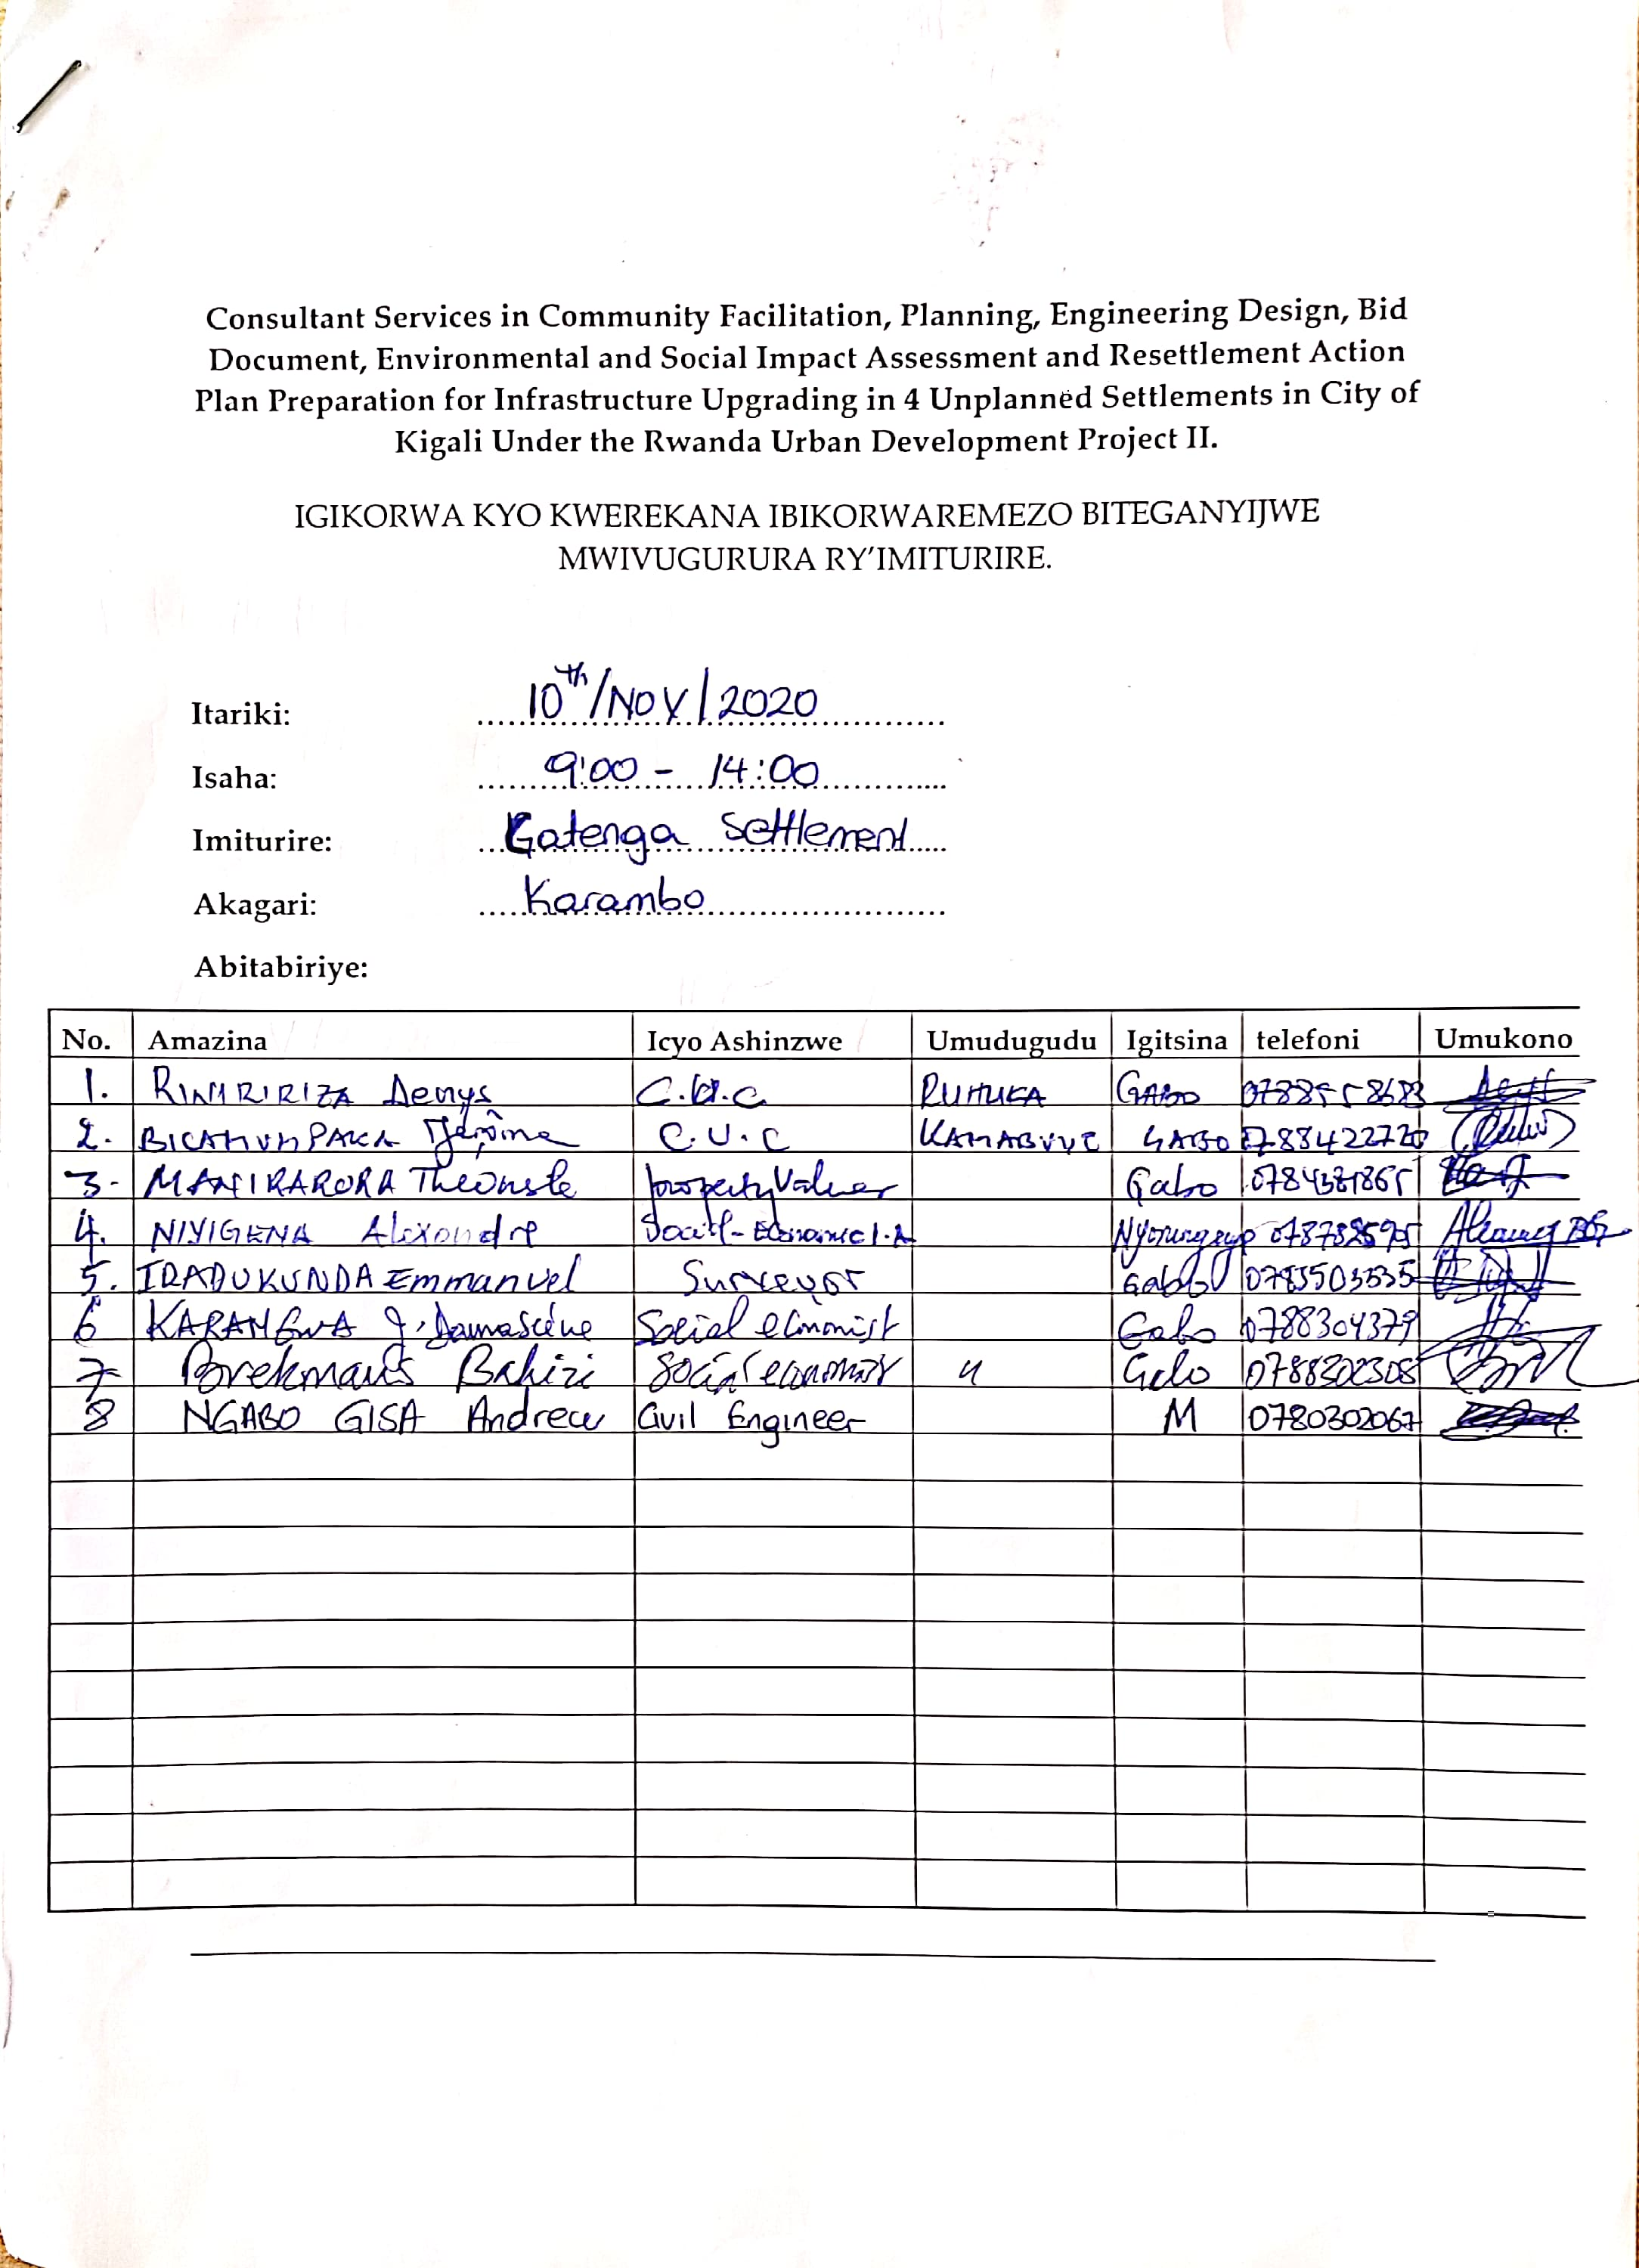 Consultant Services in Community Facilitation, Planning, Engineering Design, Bid
Document, Environmental and Social Impact Assessment and Resettlement Action
Plan Preparation for Infrastructure Upgrading in 4 Unplanned Settlements in City of
Kigali Under the Rwanda Urban Development Project II.
IGIKORWA KYO KWEREKANA IBIKORWAREMEZO BITEGANYIJWE
MWIVUGURURA RY'IMITURIRE.
Itariki: 10th/NOV/2020
Isaha: 9:00 - 14:00
Imiturire: Gatenga Settlement
Akagari: Karambo
Abitabiriye:
No. Amazina Icyo Ashinzwe Umudugudu Igitsina telefoni Umukono
1. Denys GABO
2. C.U.C GABO 0788422720
3. Property Valuer Gabo
4. NIYIGENA Alexandre
5. IRADUKUNDA Emmanuel Surveyor Gabo
6 KARANGWA J. Damascène Social economist Gabo 0788304379
7 Bahizi Social economist Gabo
8 NGABO GISA Andrew Civil Engineer M 0780302067